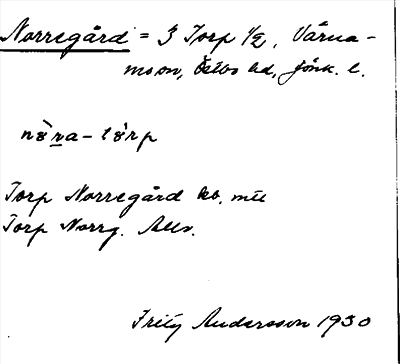 Norregård = 3 Torp 1/2, Värna-
mo sn, Östbo hd, Jönk. l.
Torp Norregård kb, mtl
Torp Norrg. Allv.
Fritz Andersson 1930